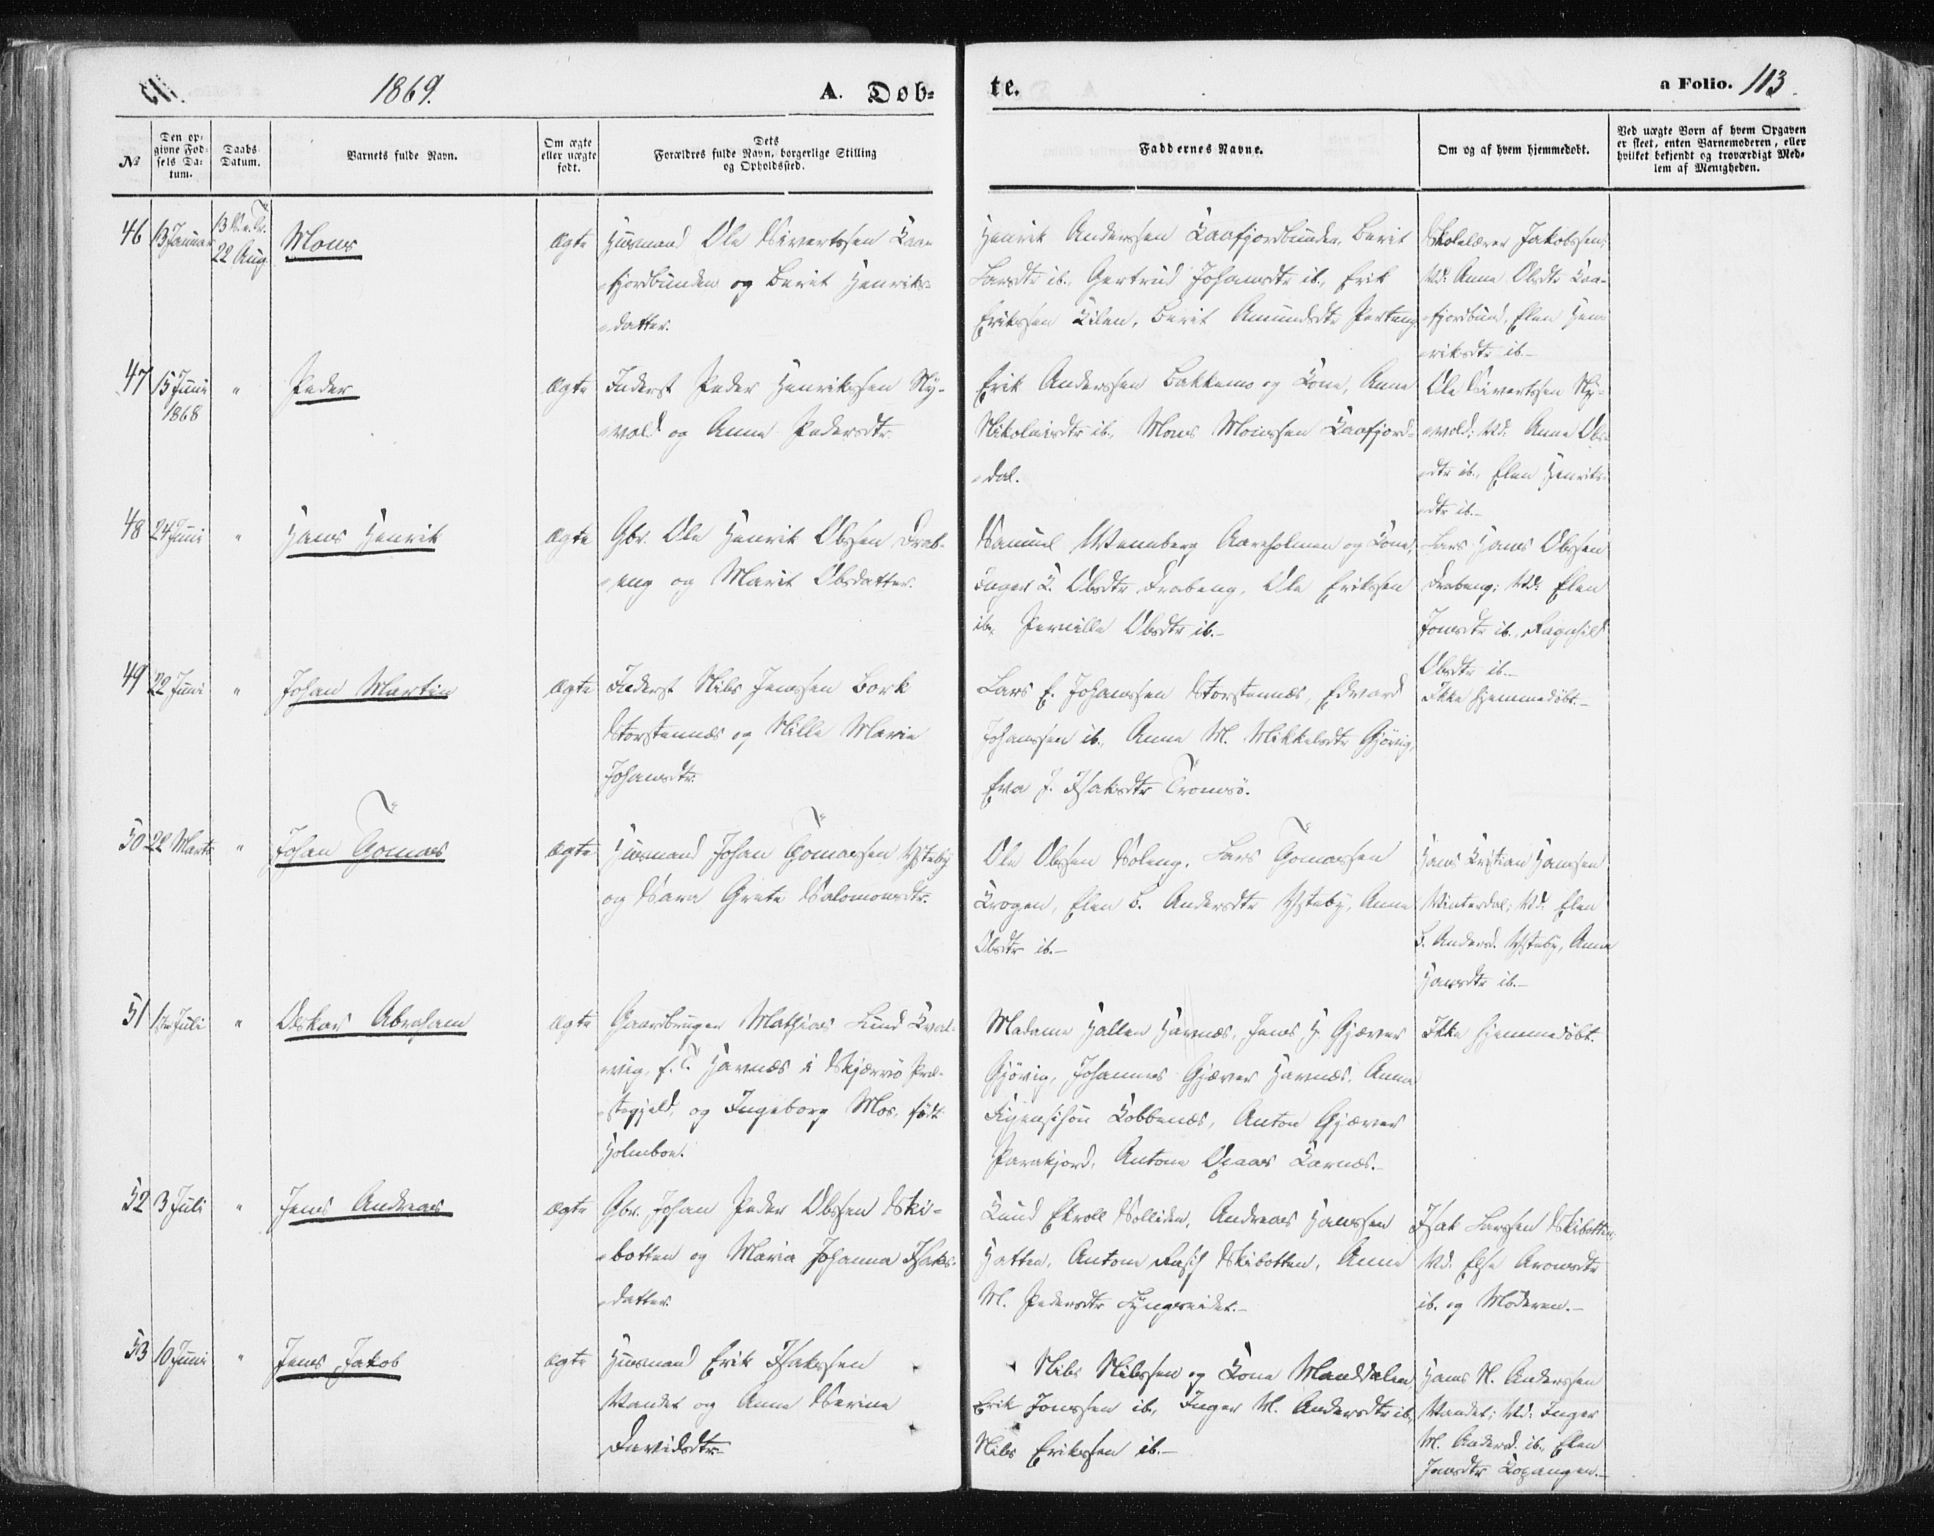 1869.
A. Dob=
te.
a Folio. 113.
No
Den op=
givne Fød=
sels Da=
tum.
Daabs
Datum.
Barnets fulde Navn.
Om ægte
eller uægte
født.
Dets
Forældres fulde Navn, borgerlige Stilling
og Opholdssted.
Faddernes Navne.
Om og af hvem hjemmedøbt.
Ved uægte Børn af hvem Opgaven
er skeet, enten Barnemoderen, eller
hvilket bekjendt og troværdigt Med=
lem af Menigheden.
46
13 Januar
13 S. e. Tr.
22 Aug
Mons
ægte
Husmand Ole Sivertssen Kaa=
fjordbunden og Berit Henriks=
datter.
Henrik Anderssen Kaafjordbunden, Berit
Larsdtr ib., Gertrud Johansdtr ib., Erik
Erikssen Kilen, Berit Amundsdtr
Skolelærer Jakobssen;
Vid: Anne Olsdtr Kaa=
fjordbund, Elen Hen=
riksdtr ib.–
47
15 Juni
1868
"
Peder
ægte
Inderst Peder Henrikssen Ny=
vold og Anne Pedersdtr
Erik Anderssen Bakkemo og Kone, Anne
Nikolaisdtr ib., Mons Monssen Kaafjord=
dal.
Ole Sivertssen Ny=
vold; Vid: Anne Ols=
dtr ib., Elen Henriks=
dtr ib.–
48
24 Juni
"
Hans Henrik
ægte
Gbr. Ole Henrik Olssen Drab=
eng og Marit Olsdatter.
Samuel Wennberg Aareholmen og Kone,
Inger K. Olsdtr Drabeng, Ole Erikssen
ib., Pernille Olsdtr ib.–
Lars Hans Olssen
Drabeng; Vid: Elen
Jonsdtr ib., Ragnhild
Olsdtr ib.–
49
22 Juni
"
Johan Martin
ægte
Inderst Nils Jenssen Bork
Storstennæs og Nille Marie
Johansdtr
Lars E. Johanssen Storstennæs, Edvard
Johanssen ib., Anne M. Mikkelsdtr Gjövig,
Eva J. Isaksdtr Tromsö.
Ikke hjemmedöbt.–
50
22 Marts
"
Johan Tomas
ægte
Husmand Johan Tomassen Ytteby
og Sara Grete Salomonsdtr.
Ole Olssen Soleng, Lars Tomassen
Krogen, Elen B. Andersdtr Ytteby, Anne
Olsdtr ib.–
Hans Kristian Hanssen
Vinterdal; Vid: Elen
B. Andersd. Ytteby, Anne
Hansdtr ib.–
51
1ste Juli
"
Oskar Abraham
ægte
Gaardbruger Mathias Lund Kval=
vig, f.T. Havnæs i Skjærvö Præ=
stegjeld, og Ingeborg Mos. födt
Holmboe.
Madame Hallen Havnæs, Jens H. Gjæver
Gjövig, Johannes Gjæver Havnæs, Anna
Kobbenæs, Anton Gjæver
Antone Karnæs.–
Ikke hjemmedöbt.
52
3 Juli
"
Jens Andreas
ægte
Gbr. Johan Peder Olssen Ski=
botten og Maria Johanna Isaks=
datter
Knud Ekroll Solliden, Andreas Hanssen
Hatten, Anton Rasch Skibotten, Anne
M. Pedersdtr Lyngseidet.–
Isak Larssen Skibotten,
Vid. Else Aronsdtr
ib. og Moderen.–
53
10 Juni
"
Jens Jakob
ægte
Husmand Erik Isakssen
Vandet og Anne Serine
Davidsdtr–
Nils Nilssen og Kone Manddalen,
Erik Jonssen ib., Inger M. Andersdtr ib,
Nils Erikssen ib.–
Hans N. Anderssen
Vandet; Vid: Inger
M. Andersd. ib., Elen
Jensdtr Kopangen.–